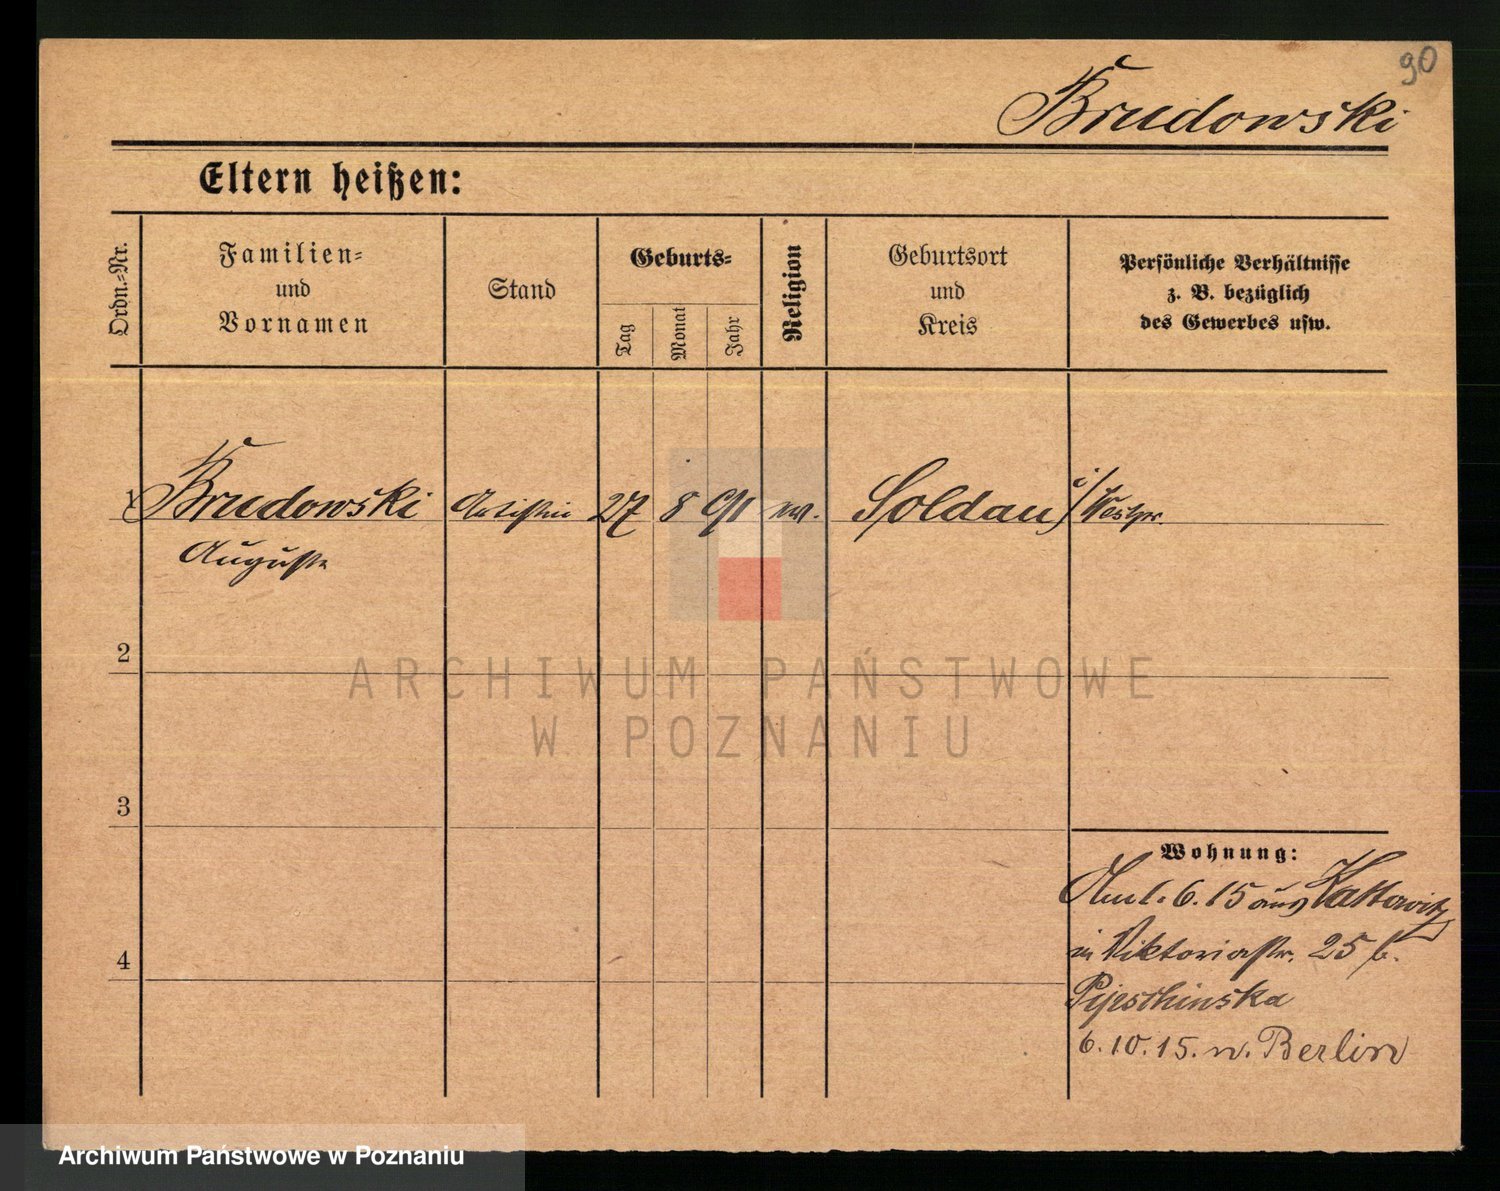 90
Brudowski
Eltern heißen:
Ordn.-Nr.
Familien-
und
Vornamen
Stand
Geburts-
Tag
Monat
Jahr
Religion
Geburtsort
und
Kreis
Persönliche Verhältnisse
z. B. bezüglich
des Gewerbes usw.
1 Brudowski Artistin 27 8 91 Soldau i/ Westpr.
Auguste
2
3
4
ARCHIWUM PAŃSTWOWE
W POZNANIU
Wohnung:
6. 15 aus Kattowitz
in Viktoriastr. 25 b.
Pijeschinska
6. 10. 15. n. Berlin
Archiwum Państwowe w Poznaniu